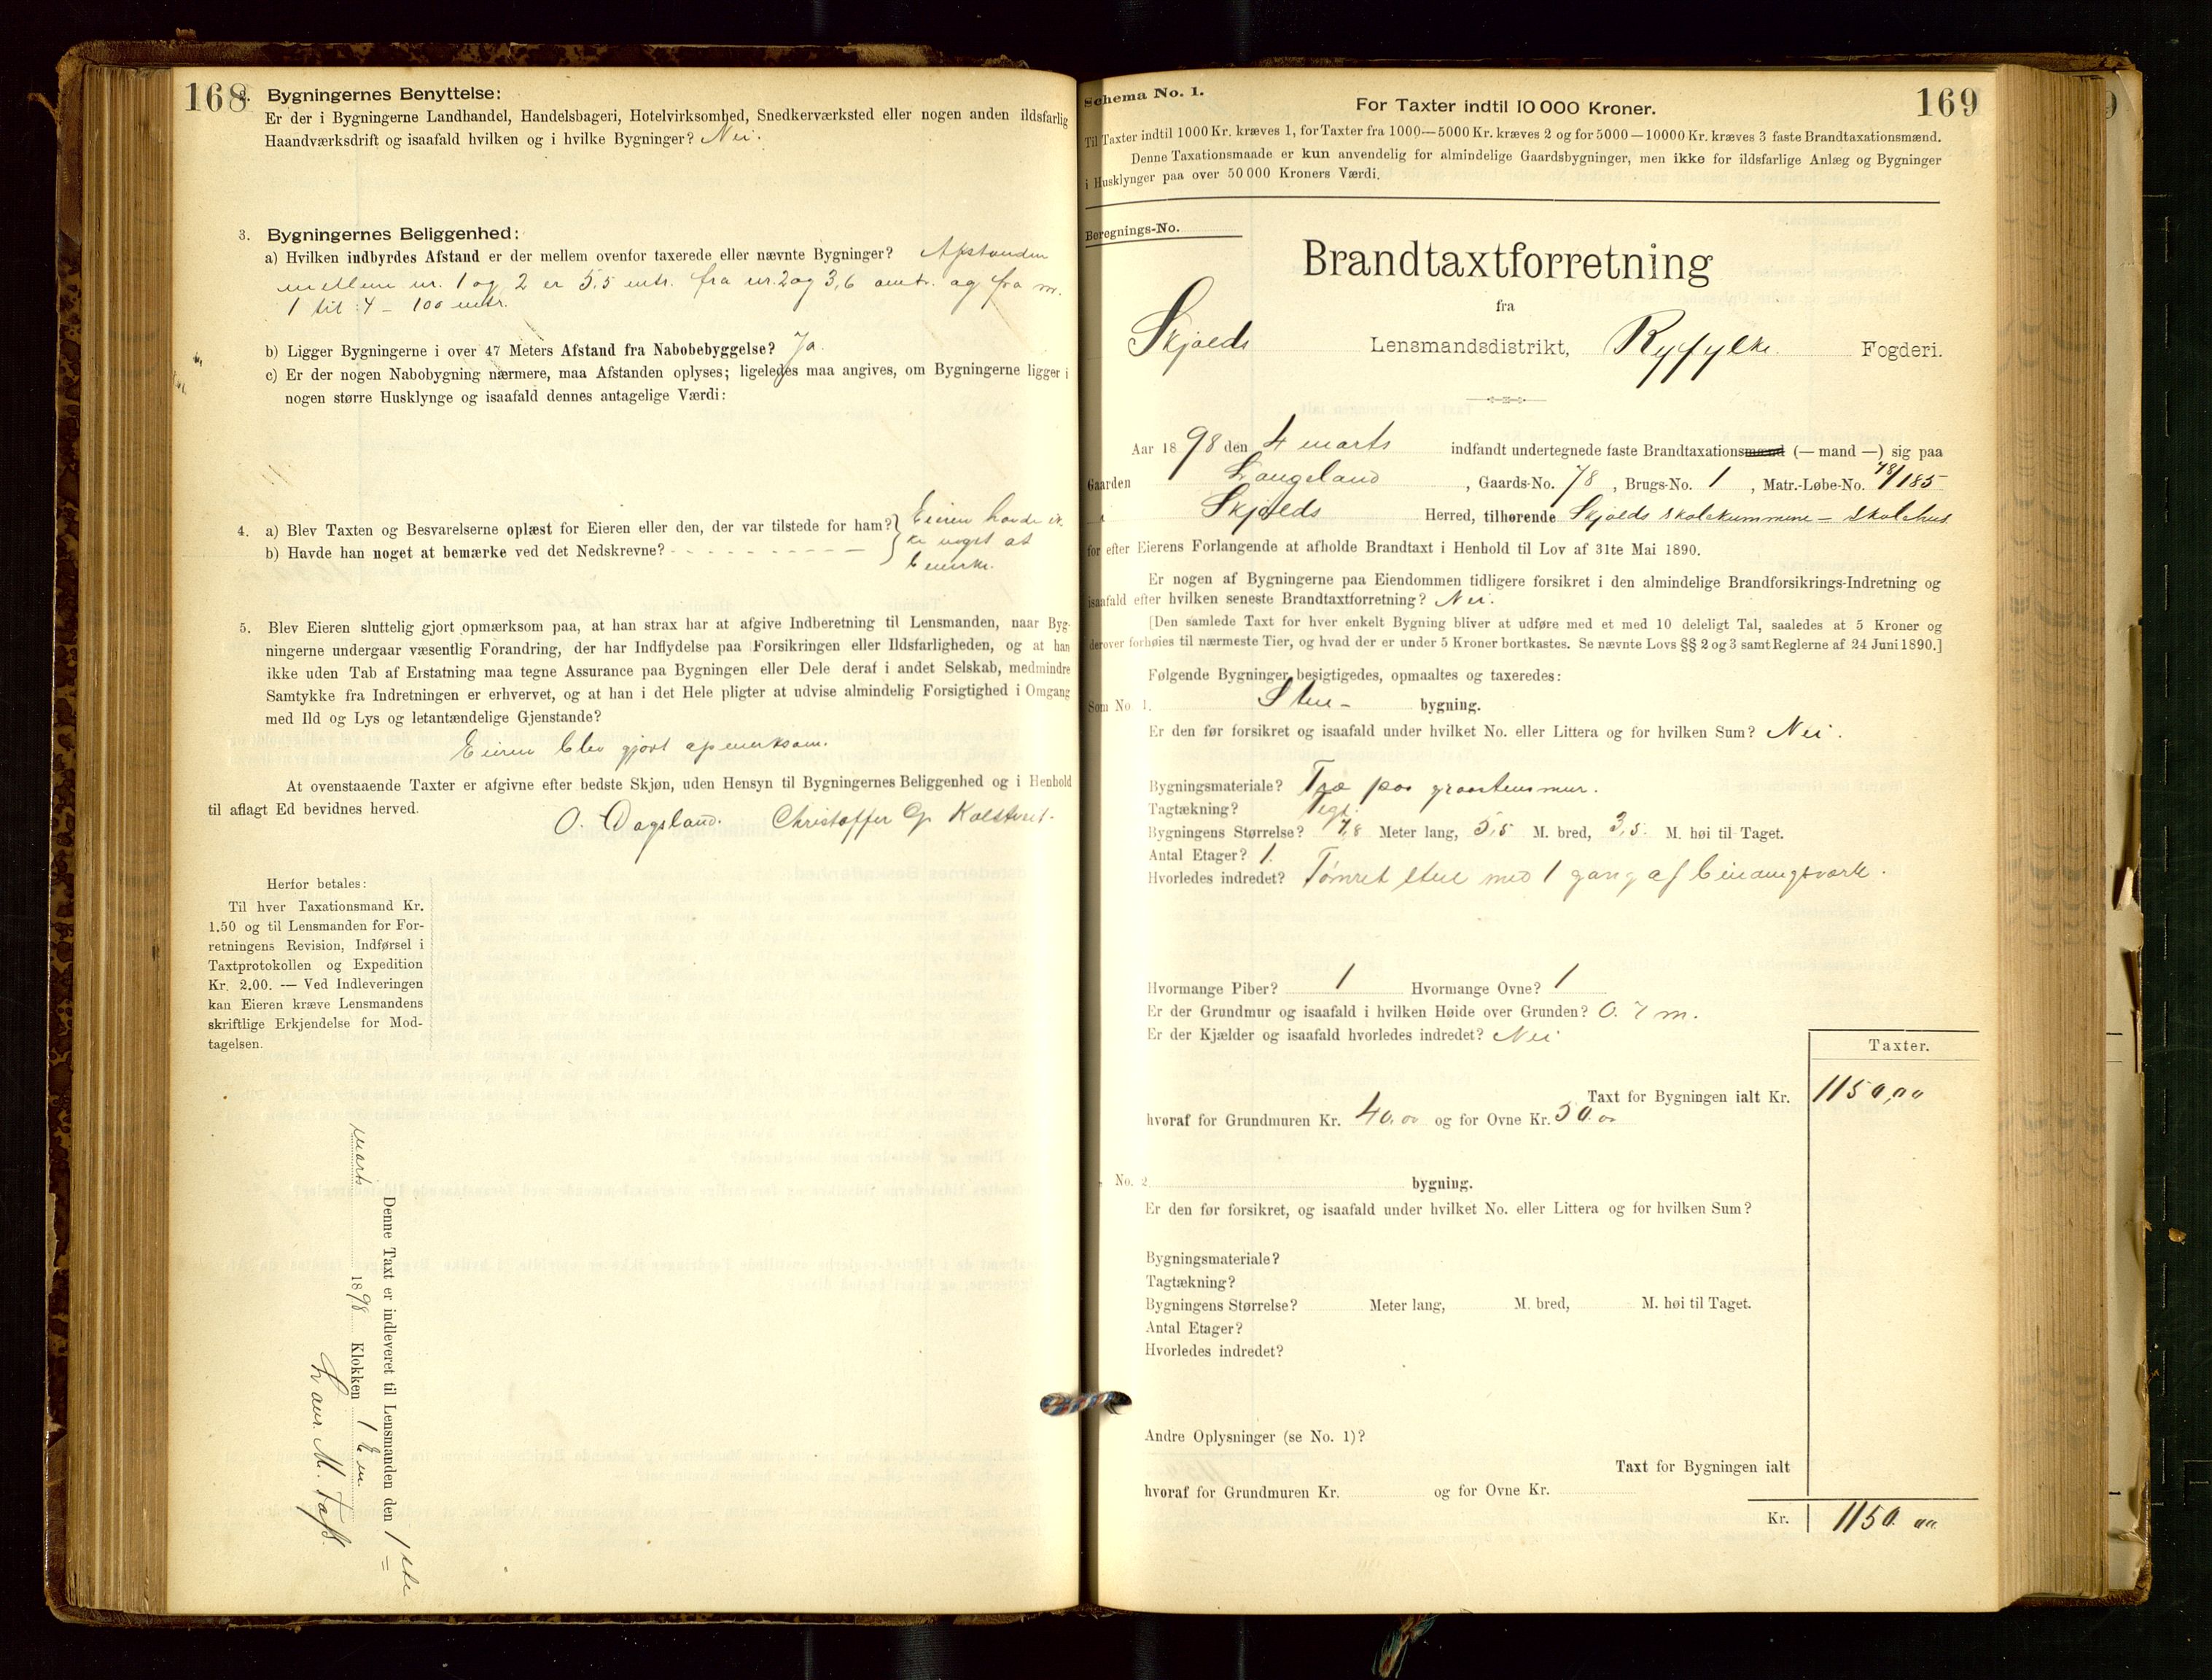 168
2. Bygningernes Benyttelse:
Er der i Bygningerne Landhandel, Handelsbageri, Hotelvirksomhed, Snedkerværksted eller nogen anden ildsfarlig
Haandværksdrift og isaafald hvilken og i hvilke Bygninger? Nei.
3. Bygningernes Beliggenhed:
a) Hvilken indbyrdes Afstand er der mellem ovenfor taxerede eller nævnte Bygninger? Afstanden
mellem nr. 1 og 2 er 5,5 mtr. fra nr. 2 og 3, 6 mtr. og fra nr.
1 til 4 – 100 mtr.
b) Ligger Bygningerne i over 47 Meters Afstand fra Nabobebyggelse? Ja.
c) Er der nogen Nabobygning nærmere, maa Afstanden oplyses; ligeledes maa angives, om Bygningerne ligger i
nogen større Husklynge og isaafald dennes antagelige Værdi:
4. a) Blev Taxten og Besvarelserne oplæst for Eieren eller den, der var tilstede for ham? Eieren havde ik
b) Havde han noget at bemærke ved det Nedskrevne? ke noget at
bemerke.
5. Blev Eieren sluttelig gjort opmærksom paa, at han strax har at afgive Indberetning til Lensmanden, naar Byg-
ningerne undergaar væsentlig Forandring, der har Indflydelse paa Forsikringen eller Ildsfarligheden, og at han
ikke uden Tab af Erstatning maa tegne Assurance paa Bygningen eller Dele deraf i andet Selskab, medmindre
Samtykke fra Indretningen er erhvervet, og at han i det Hele pligter at udvise almindelig Forsigtighed i Omgang
med Ild og Lys og letantændelige Gjenstande?
Eieren blev gjort opmerksom.
At ovenstaaende Taxter er afgivne efter bedste Skjøn, uden Hensyn til Bygningernes Beliggenhed og i Henhold
til aflagt Ed bevidnes herved.
O. Dagsland. Christoffer G.
Herfor betales:
Til hver Taxationsmand Kr.
1.50 og til Lensmanden for For-
retningens Revision, Indførsel i
Taxtprotokollen og Expedition
Kr. 2.00. — Ved Indleveringen
kan Eieren kræve Lensmandens
skriftlige Erkjendelse for Mod-
tagelsen.
Denne Taxt er indleveret til Lensmanden den 1ste
marts 1898 Klokken 1 E. m.
Laur. M.
Schema No. 1.
For Taxter indtil 10 000 Kroner.
169
Til Taxter indtil 1000 Kr. kræves 1, for Taxter fra 1000—5000 Kr. kræves 2 og for 5000—10000 Kr. kræves 3 faste Brandtaxationsmænd.
Denne Taxationsmaade er kun anvendelig for almindelige Gaardsbygninger, men ikke for ildsfarlige Anlæg og Bygninger
i Husklynger paa over 50 000 Kroners Værdi.
Beregnings-No.
Brandtaxtforretning
fra
Skjolds Lensmandsdistrikt, Ryfylke Fogderi.
Aar 1898 den 4 marts indfandt undertegnede faste Brandtaxationsmænd (— mand —) sig paa
Gaarden Langeland, Gaards-No. 78, Brugs-No. 1, Matr.-Løbe-No. 78/185
i Skjolds Herred, tilhørende Skjolds skolekommune – skolehus
for efter Eierens Forlangende at afholde Brandtaxt i Henhold til Lov af 31te Mai 1890.
Er nogen af Bygningerne paa Eiendommen tidligere forsikret i den almindelige Brandforsikrings-Indretning og
isaafald efter hvilken seneste Brandtaxtforretning? Nei.
[Den samlede Taxt for hver enkelt Bygning bliver at udføre med et med 10 deleligt Tal, saaledes at 5 Kroner og
derover forhøies til nærmeste Tier, og hvad der er under 5 Kroner bortkastes. Se nævnte Lovs §§ 2 og 3 samt Reglerne af 24 Juni 1890.]
Følgende Bygninger besigtigedes, opmaaltes og taxeredes:
Som No 1. Stue- bygning.
Er den før forsikret og isaafald under hvilket No. eller Littera og for hvilken Sum? Nei.
Bygningsmateriale? Træ paa graastensmur.
Tagtækning? Tegl.
Bygningens Størrelse? 7,8 Meter lang, 5,5 M. bred, 3,5. M. høi til Taget.
Antal Etager? 1.
Hvorledes indredet? Tømret stue med 1 gang af bindingsverk.
Hvormange Piber? 1 Hvormange Ovne? 1
Er der Grundmur og isaafald i hvilken Høide over Grunden? 0.7 m.
Er der Kjælder og isaafald hvorledes indredet? Nei
Taxter.
Taxt for Bygningen ialt Kr. 1150,00
hvoraf for Grundmuren Kr. 40,00 og for Ovne Kr. 50.00
No. 2 bygning.
Er den før forsikret, og isaafald under hvilket No. eller Littera og for hvilken Sum?
Bygningsmateriale?
Tagtækning?
Bygningens Størrelse? Meter lang, M. bred, M. høi til Taget.
Antal Etager?
Hvorledes indredet?
Andre Oplysninger (se No. 1)?
Taxt for Bygningen ialt
hvoraf for Grundmuren Kr. og for Ovne Kr.
Kr. 1150.00